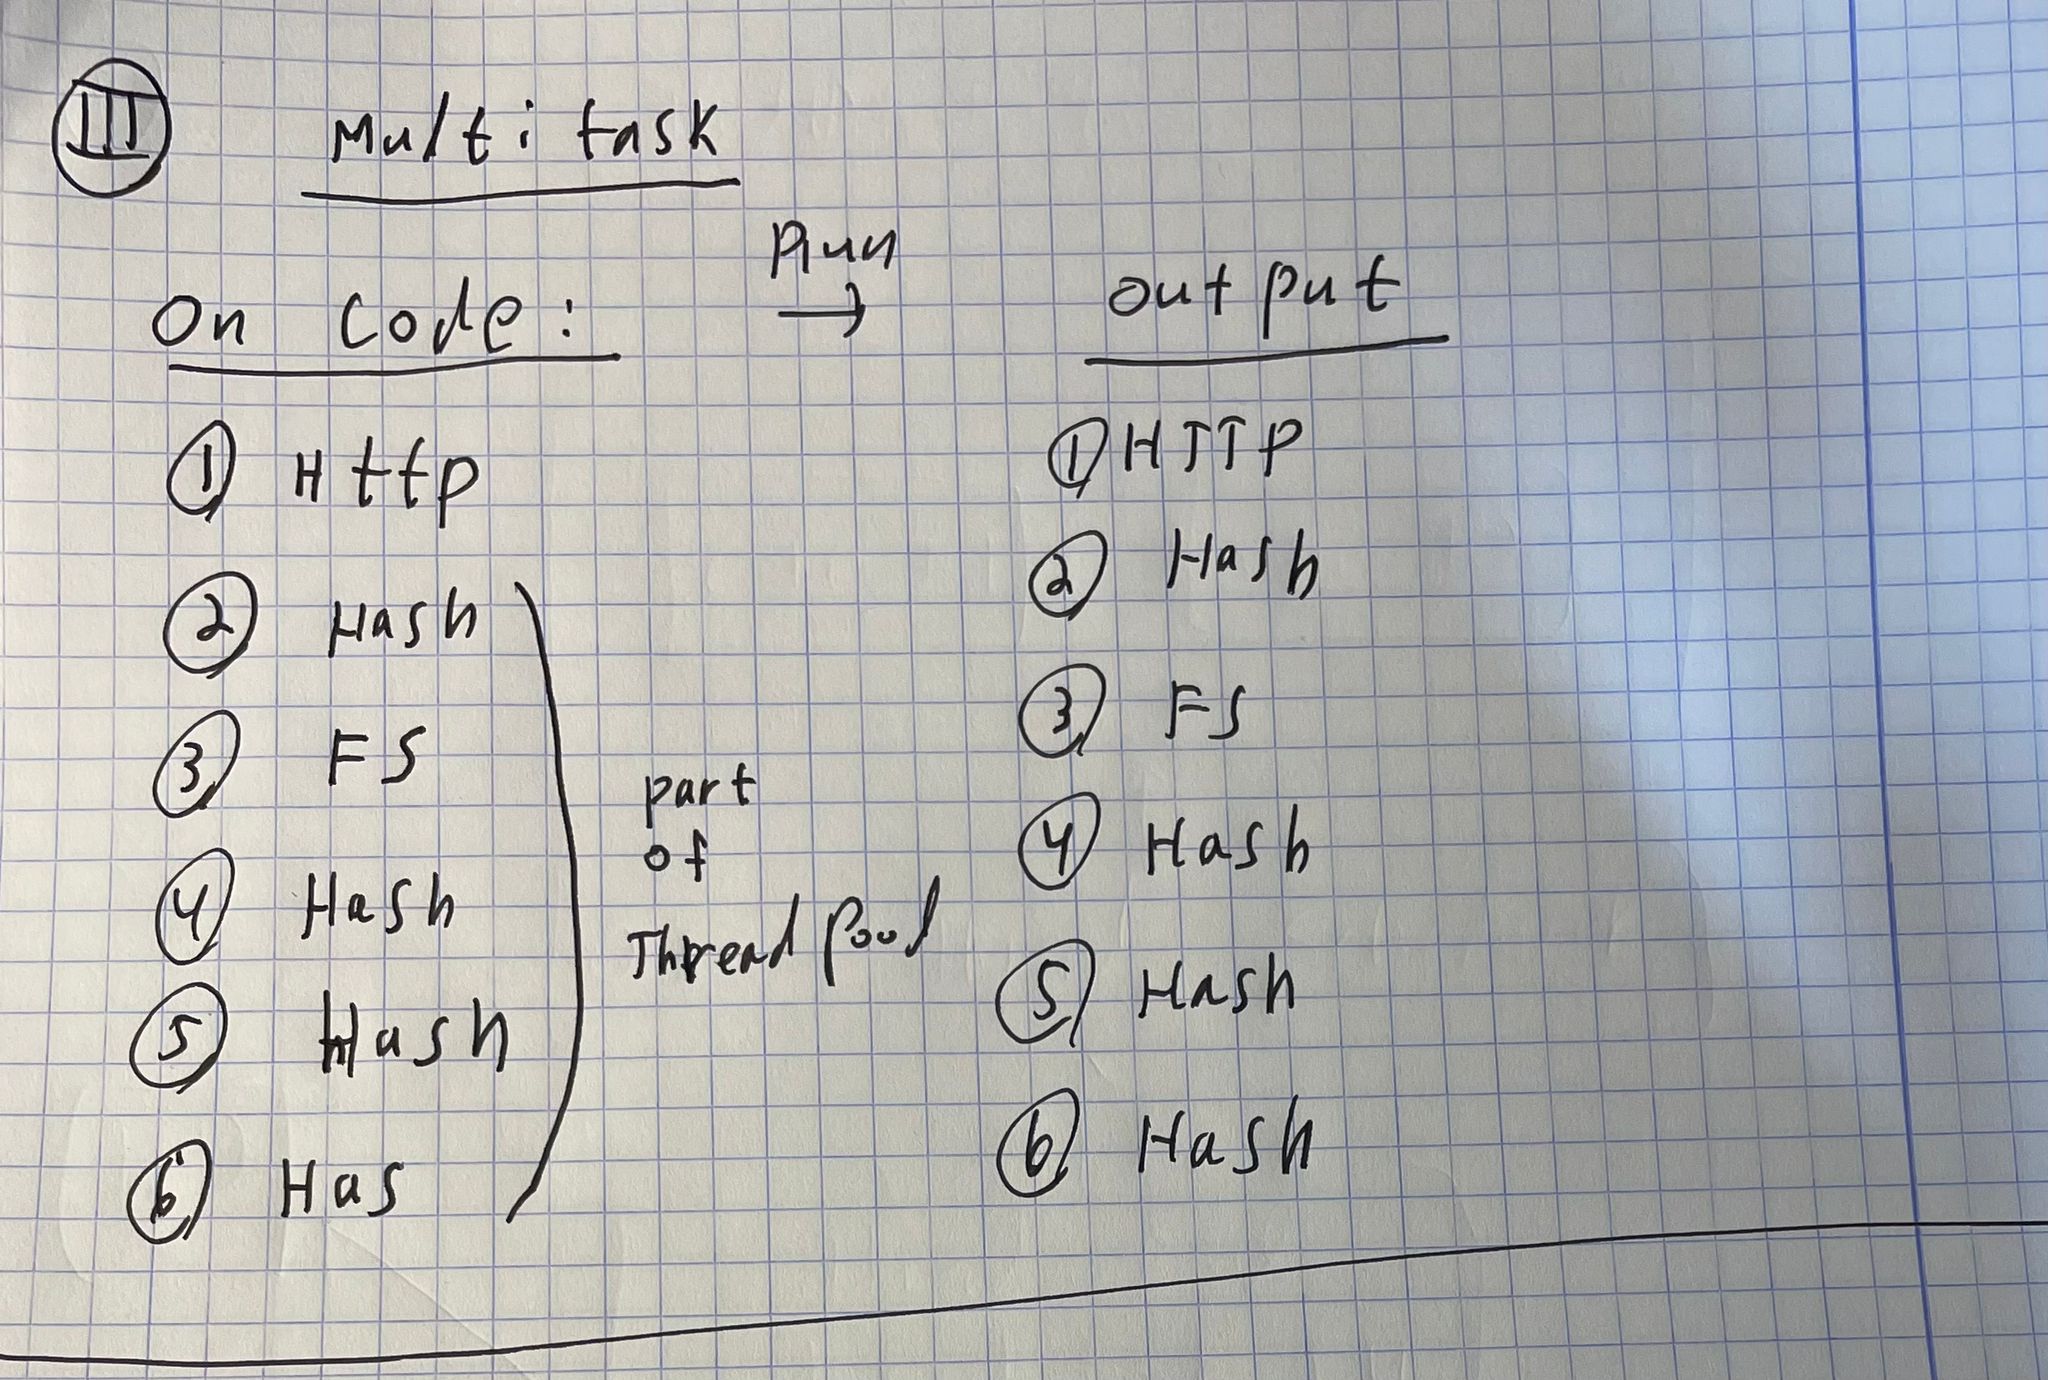 III Multi task
Run
→
On Code:
output
① Http
② Hash
③ FS
④ Hash
⑤ Hash
⑥ Has
part
of
Thread Pool
① HTTP
② Hash
③ FS
④ Hash
⑤ Hash
⑥ Hash